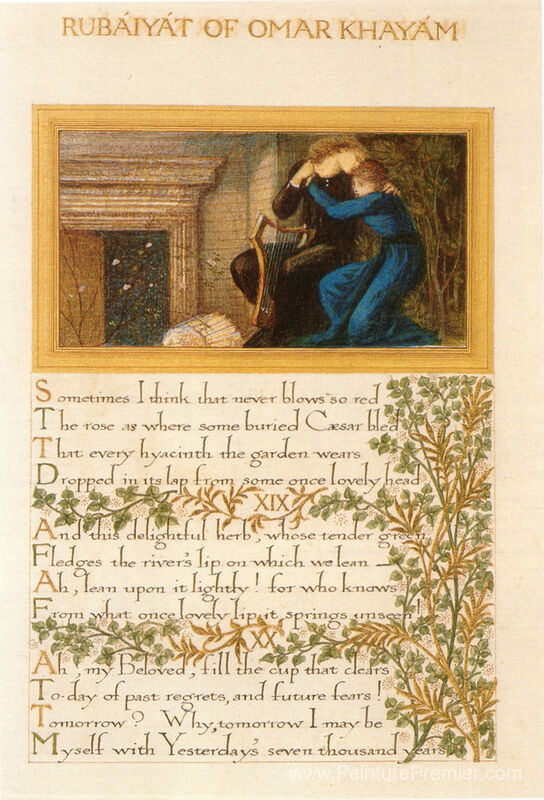 RUBÁIYÁT OF OMAR KHAYÁM
Sometimes I think that never blows so red
The rose as where some buried Cæsar bled
That every hyacinth the garden wears
Dropped in its lap from some once lovely head
XIX
And this delightful herb, whose tender green
Fledges the river's lip on which we lean —
Ah, lean upon it lightly! for who knows
From what once lovely lip it springs unseen!
XX
Ah, my Beloved, fill the cup that clears
To-day of past regrets, and future fears!
Tomorrow? Why, tomorrow I may be
Myself with Yesterday's seven thousand years
www.PeinturePremier.com